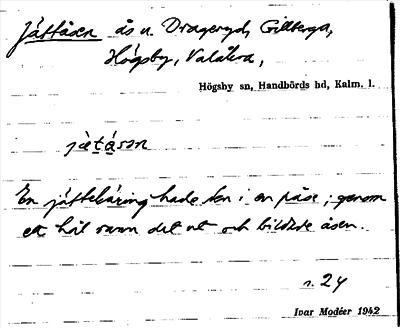 Jättåsen ås n. Drageryd, Gillberga,
Högsby, Valåkra,
Högsby sn, Handbörds hd, Kalm. l.
jä̀tå̀sən
En jättekäring hade sten i en påse; genom
ett hål rann det ut och bildade åsen.
s. 24
Ivar Modéer 1942